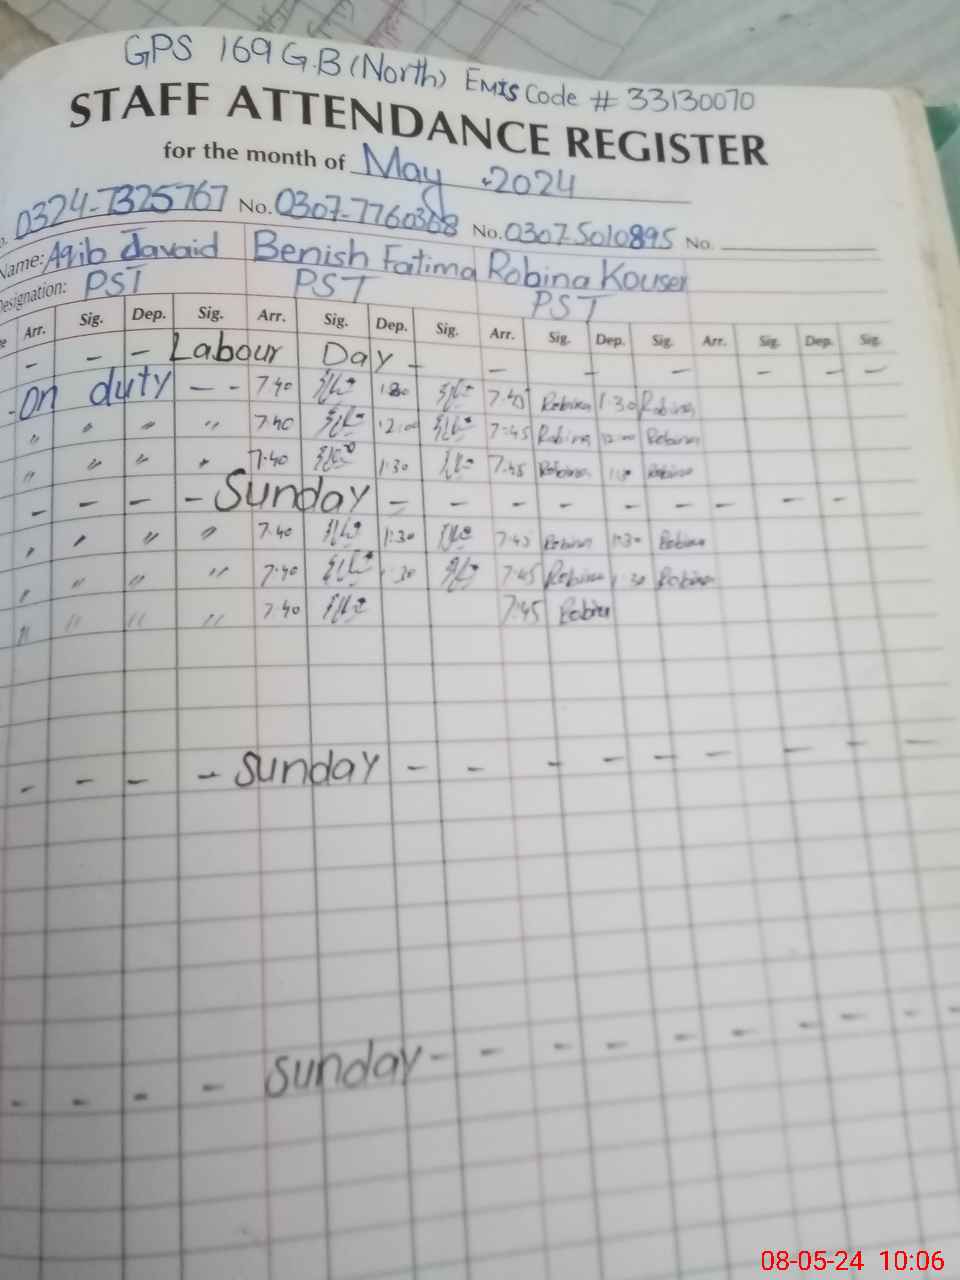 GPS 169 G.B (North) EMIS Code # 33130070
STAFF ATTENDANCE REGISTER
for the month of May 2024
0324-7325767 No. 0307-7760368 No. 0307-5010895 No.
Name: Aqib Javaid Benish Fatima Robina Kouser
Designation: PST PST PST
Arr. Sig. Dep. Sig. Arr. Sig. Dep. Sig. Arr. Sig. Dep. Sig. Arr. Sig. Dep. Sig.
- - - Labour Day - - - - - - -
on duty - - 7:40 1:30 7:45 Robina 1:30 Robina
" " " " 7:40 12:00 7:45 Robina 12:00 Robina
" " " " 7:40 1:30 7:45 Robina 1:30 Robina
- - - - Sunday - - - - - - - - -
" " " " 7:40 1:30 7:45 Robina 1:30 Robina
" " " " 7:40 1:30 7:45 Robina 1:30 Robina
" " " " 7:40 7:45 Robina
- - - - Sunday - - - - - - - - -
- - - - Sunday - - - - - - - - -
08-05-24 10:06